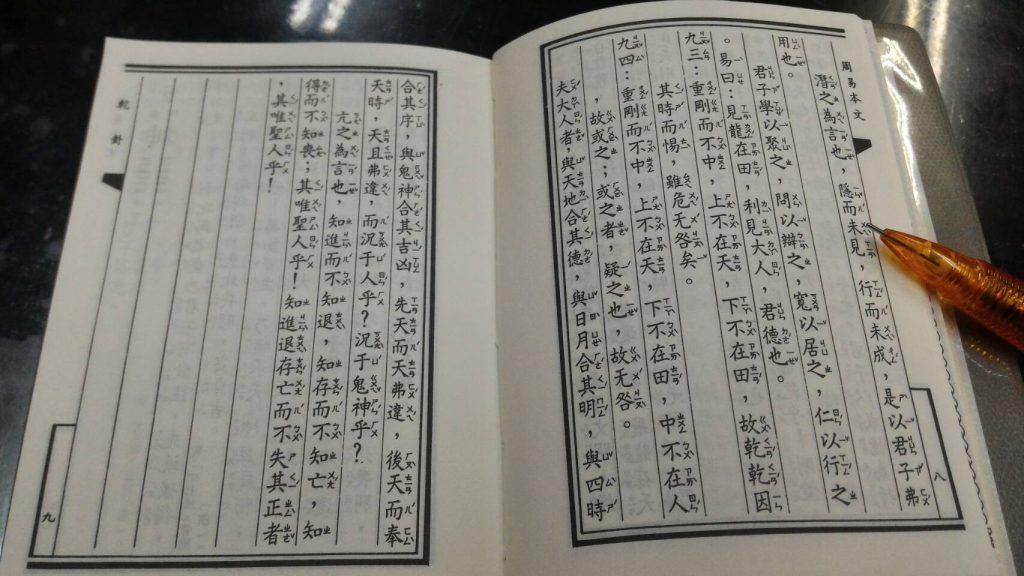 周易本文
潛之為言也，隱而未見，行而未成，是以君子弗
用也。
君子學以聚之，問以辯之，寬以居之，仁以行之
。易曰：見龍在田，利見大人，君德也。
九三：重剛而不中，上不在天，下不在田，故乾乾因
其時而惕，雖危无咎矣。
九四：重剛而不中，上不在天，下不在田，中不在人
，故或之；或之者，疑之也，故无咎。
夫大人者，與天地合其德，與日月合其明，與四時
八
合其序，與鬼神合其吉凶，先天而天弗違，後天而奉
天時，天且弗違，而況于人乎？況于鬼神乎？
亢之為言也，知進而不知退，知存而不知亡，知
得而不知喪，其唯聖人乎！知進退存亡而不失其正者
，其唯聖人乎！
乾卦
九